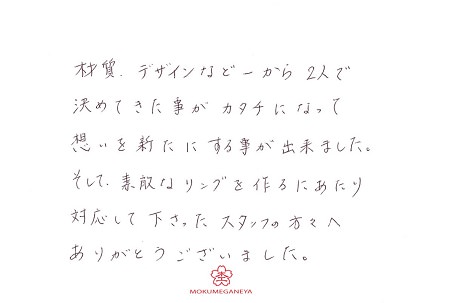 材質、デザインなど一から2人で
決めてきた事がカタチになって
想いを新たにする事が出来ました。
そして、素敵なリングを作るにあたり
対応して下さったスタッフの方々へ
ありがとうございました。
MOKUMEGANEYA